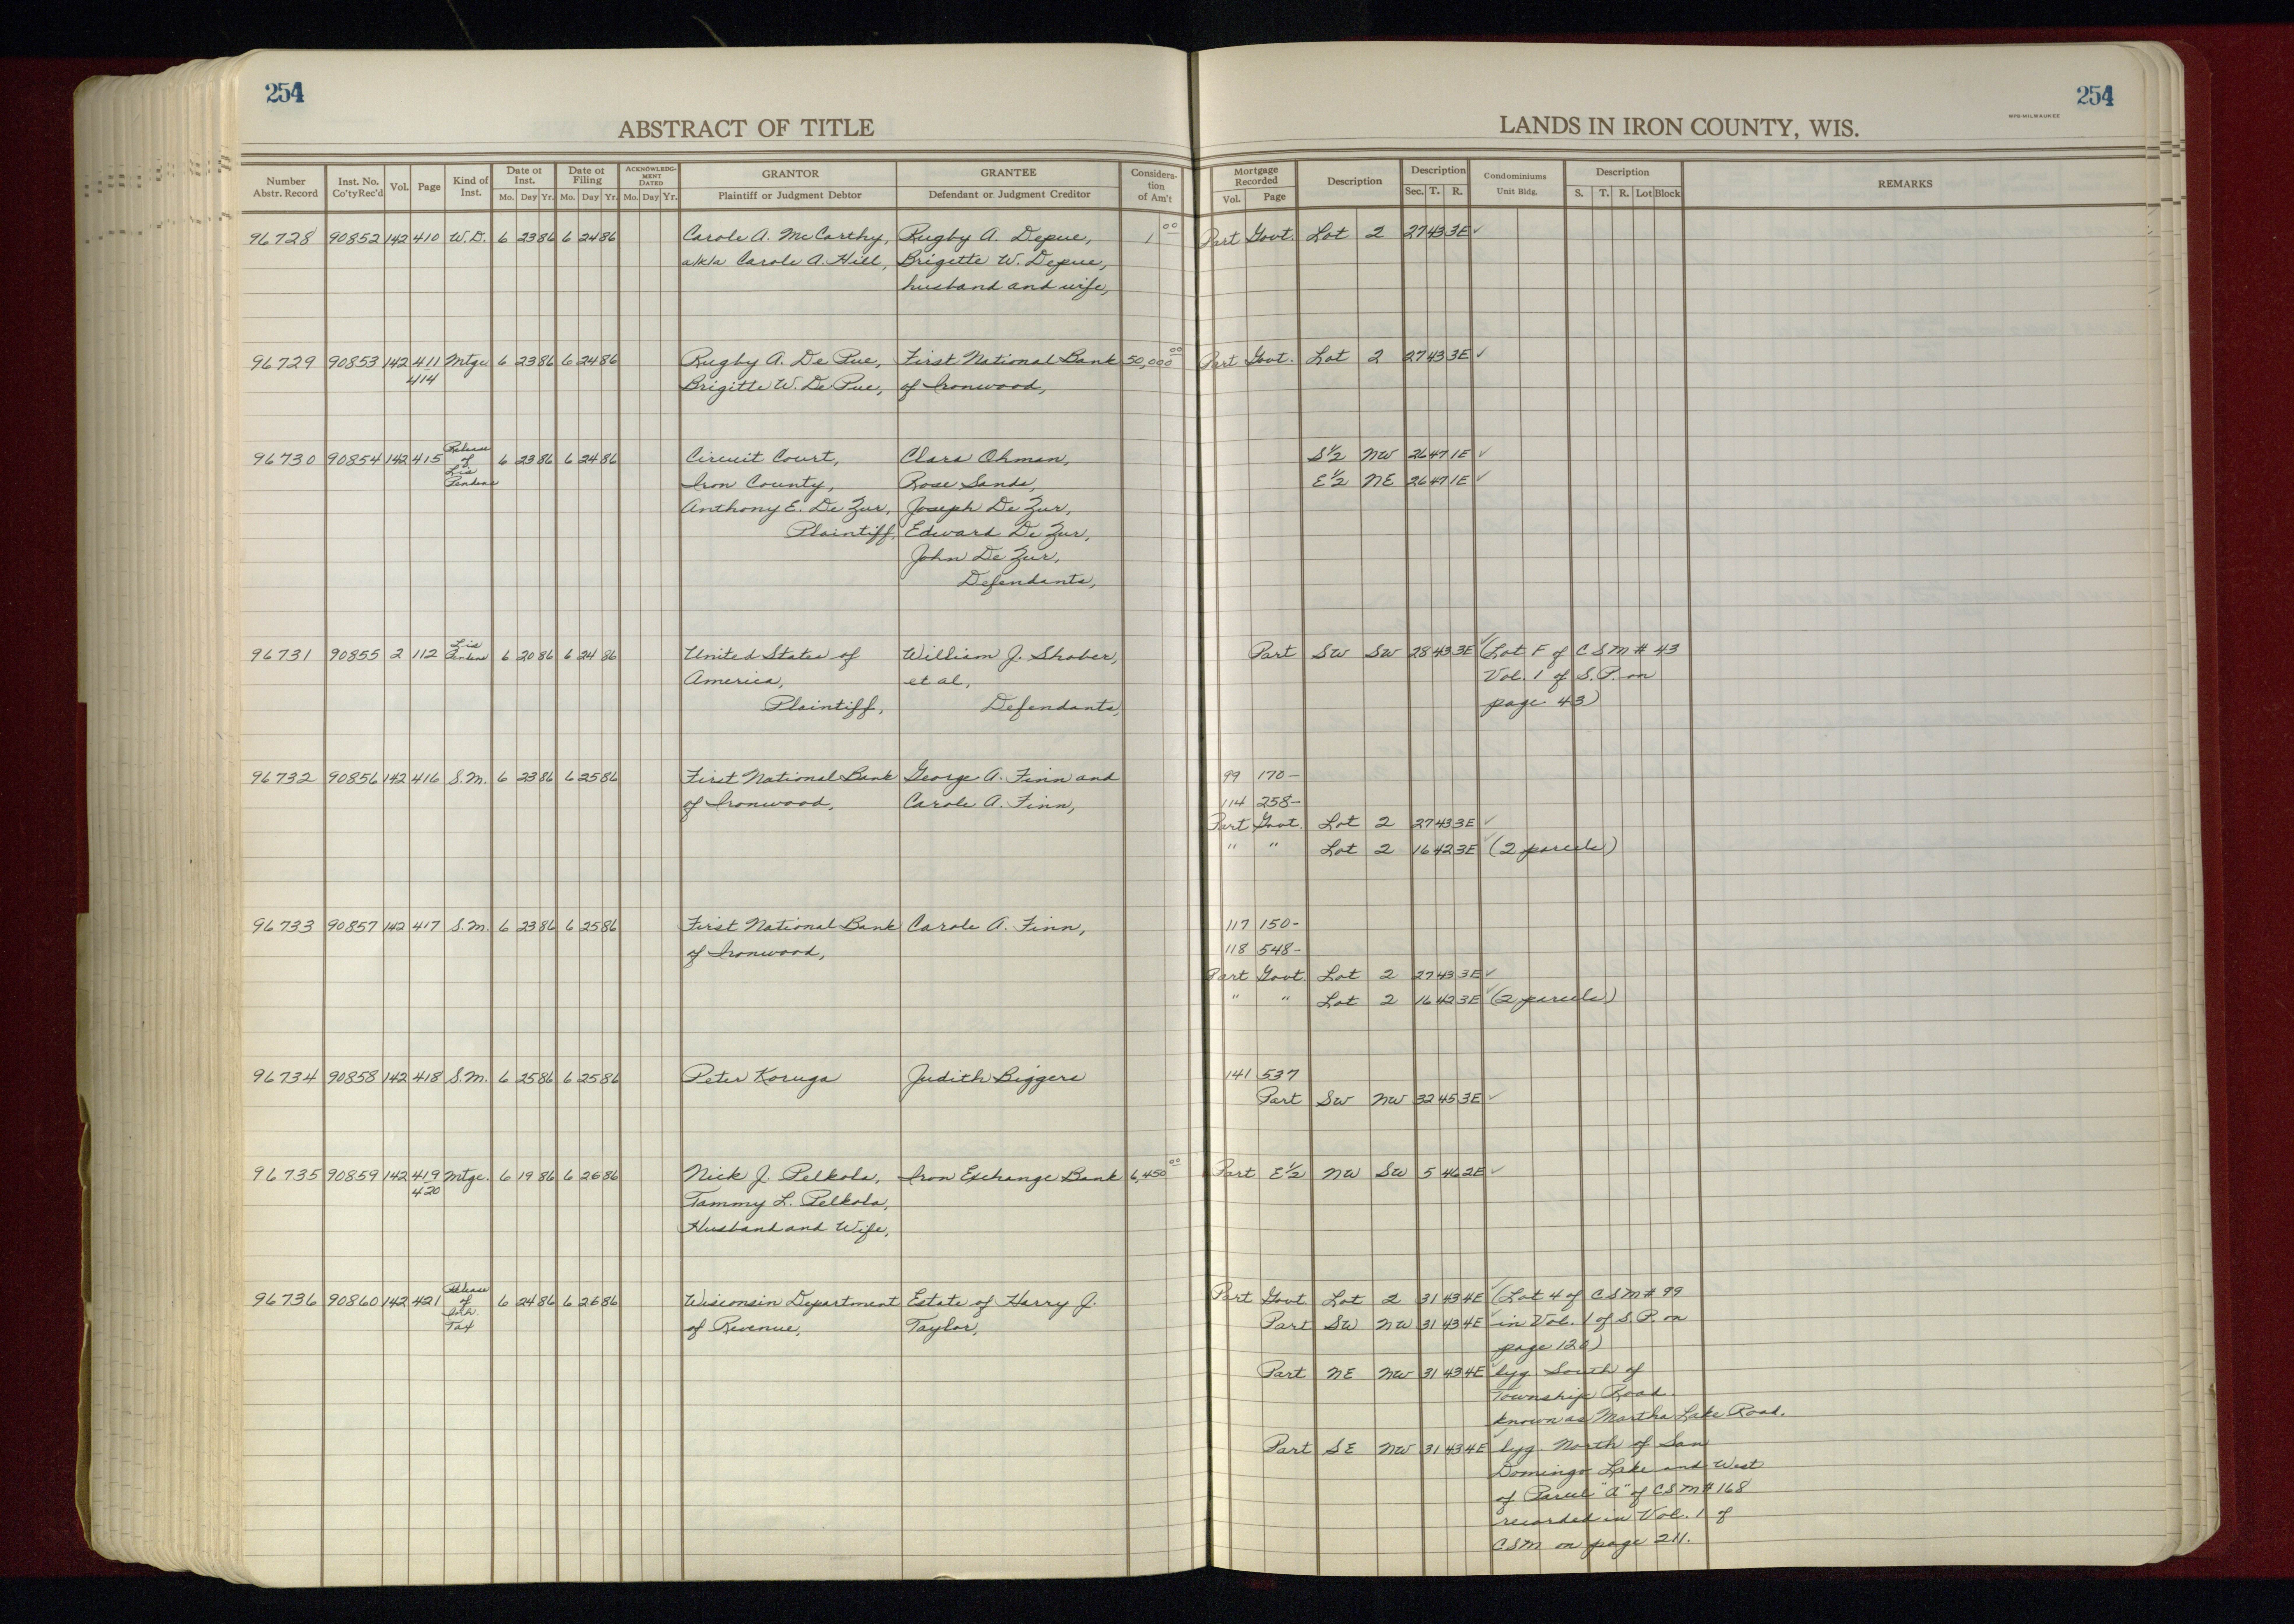 254
254
ABSTRACT OF TITLE
LANDS IN IRON COUNTY, WIS.
MPB-MILWAUKEE
Number Abstr. Record
Inst. No. Co'ty Rec'd
Vol.
Page
Kind of Inst.
Date of Inst.
Mo. Day Yr.
Date of Filing
Mo. Day Yr.
ACKNOWLEDGMENT DATED
Mo. Day Yr.
GRANTOR
Plaintiff or Judgment Debtor
GRANTEE
Defendant or Judgment Creditor
Consideration of Am't
Mortgage Recorded
Vol. Page
Description
Description
Sec. T. R.
Condominiums
Unit Bldg.
Description
S. T. R. Lot Block
REMARKS
96728 90852 142 410 W.D. 6 23 86 6 24 86 Carole A. McCarthy, Rugby A. Depue, 1 00 Part Govt. Lot 2 27 43 3E ✓
a/k/a Carole A. Hill, Brigette W. Depue,
husband and wife,
96729 90853 142 411 Mtge 6 23 86 6 24 86 Rugby A. De Pue, First National Bank 50,000 00 Part Govt. Lot 2 27 43 3E ✓
414 Brigitte W. De Pue, of Ironwood,
96730 90854 142 415 Release of Lis Pendens 6 23 86 6 24 86 Circuit Court, Clara Ohman, S½ NW 26 47 1E ✓
Iron County, Rose Sands, E½ NE 26 47 1E ✓
Anthony E. De Zur, Joseph De Zur,
Plaintiff, Edward De Zur,
John De Zur,
Defendants,
96731 90855 2 112 Lis Pendens 6 20 86 6 24 86 United States of William J. Shober, Part SW SW 28 43 3E ✓ (Lot F of CSM # 43
America, et al, Vol. 1 of S.P. on
Plaintiff, Defendants, page 43)
96732 90856 142 416 S.M. 6 23 86 6 25 86 First National Bank George A. Finn and 99 170-
of Ironwood, Carole A. Finn, 114 258-
Part Govt. Lot 2 27 43 3E ✓
" " Lot 2 16 42 3E ✓ (2 parcels)
96733 90857 142 417 S.M. 6 23 86 6 25 86 First National Bank Carole A. Finn, 117 150-
of Ironwood, 118 548-
Part Govt. Lot 2 27 43 3E ✓
" " Lot 2 16 42 3E ✓ (2 parcels)
96734 90858 142 418 S.M. 6 25 86 6 25 86 Peter Koruga Judith Biggers 141 537
Part SW NW 32 45 3E ✓
96735 90859 142 419 Mtge. 6 19 86 6 26 86 Nick J. Pelkola, Iron Exchange Bank 6,450 00 Part E½ NW SW 5 46 2E ✓
420 Tammy L. Pelkola,
Husband and Wife,
96736 90860 142 421 Release of Inh. Tax 6 24 86 6 26 86 Wisconsin Department Estate of Harry J. Part Govt Lot 2 31 43 4E ✓ (Lot 4 of CSM # 99
of Revenue, Taylor, Part SW NW 31 43 4E ✓ in Vol. 1 of S.P. on
page 120)
Part NE NW 31 43 4E ✓ lyg South of
Township Road
known as Martha Lake Road.
Part SE NW 31 43 4E ✓ lyg. North of San
Domingo Lake and West
of Parcel "A" of CSM # 168
recorded in Vol. 1 of
CSM on page 211.